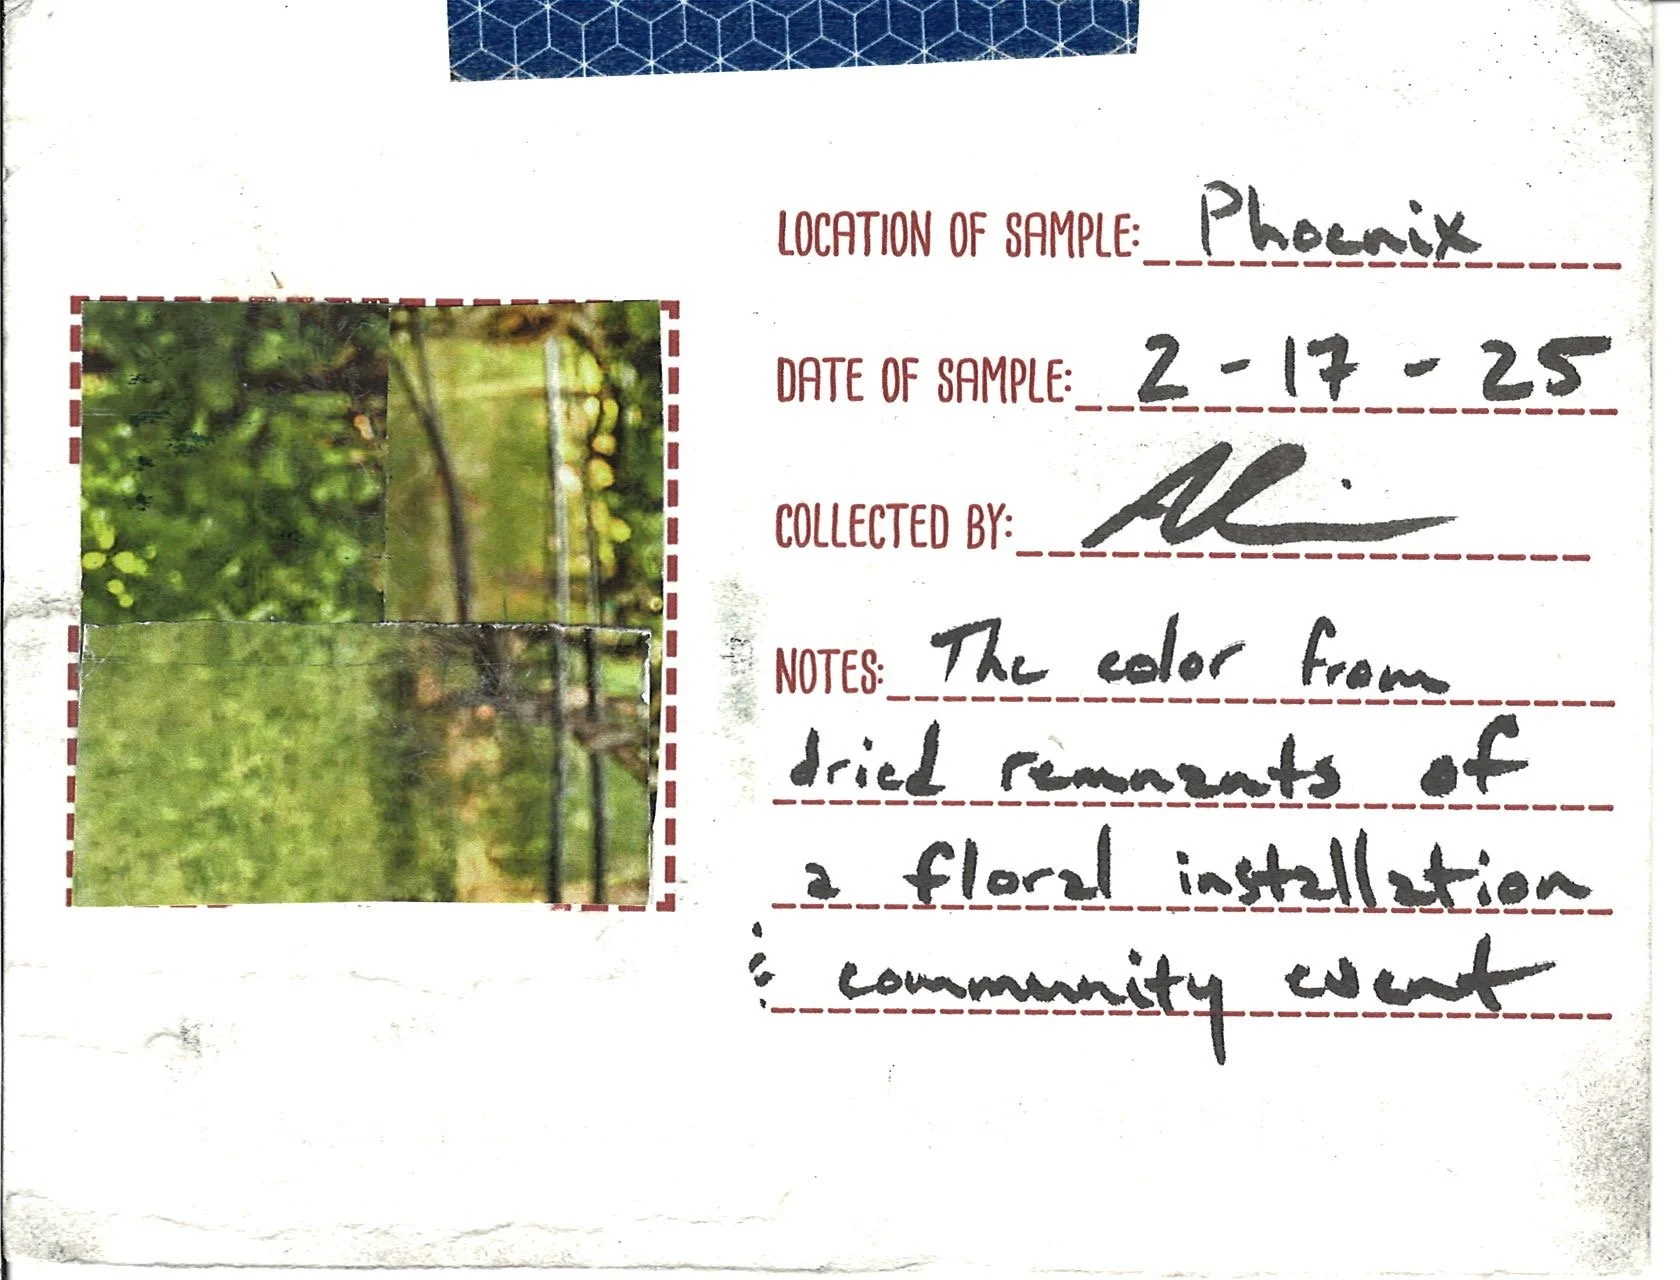 LOCATION OF SAMPLE: Phoenix
DATE OF SAMPLE: 2-17-25
COLLECTED BY:
NOTES: The color from
dried remnants of
a floral installation
& community event